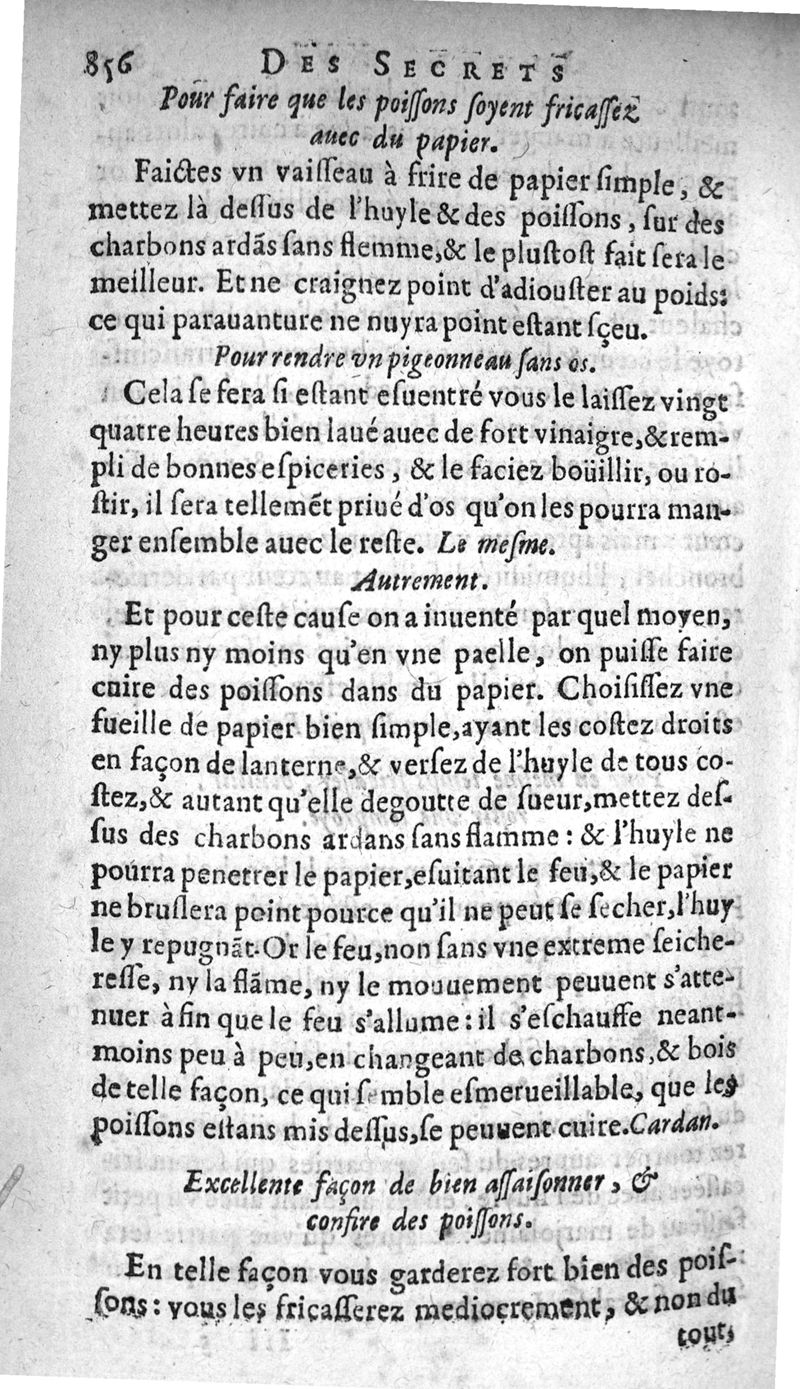 856 DES SECRETS
Pour faire que les poiſſons ſoyent fricaſſez
auec du papier.
Faictes vn vaiſſeau à frire de papier ſimple, &
mettez là deſſus de l'huyle & des poiſſons, ſur des
charbons ardãs ſans flemme, & le pluſtoſt fait ſera le
meilleur. Et ne craignez point d'adiouſter au poids:
ce qui parauanture ne nuyra point eſtant ſçeu.
Pour rendre vn pigeonneau ſans os.
Cela ſe fera ſi eſtant eſuentré vous le laiſſez vingt
quatre heures bien laué auec de fort vinaigre, & rem-
pli de bonnes eſpiceries, & le faciez boüillir, ou ro-
ſtir, il ſera tellemẽt priué d'os qu'on les pourra man-
ger enſemble auec le reſte. Le meſme.
Autrement.
Et pour ceſte cauſe on a inuenté par quel moyen,
ny plus ny moins qu'en vne paelle, on puiſſe faire
cuire des poiſſons dans du papier. Choiſiſſez vne
fueille de papier bien ſimple, ayant les coſtez droits
en façon de lanterne, & verſez de l'huyle de tous co-
ſtez, & autant qu'elle degoutte de ſueur, mettez deſ-
ſus des charbons ardans ſans flamme: & l'huyle ne
pourra penetrer le papier, eſuitant le feu, & le papier
ne bruſlera point pource qu'il ne peut ſe ſecher, l'huy
le y repugnãt. Or le feu, non ſans vne extreme ſeiche-
reſſe, ny la flãme, ny le mouuement peuuent s'atte-
nuer à fin que le feu s'allume: il s'eſchauffe neant-
moins peu à peu, en changeant de charbons, & bois
de telle façon, ce qui ſemble eſmerueillable, que les
poiſſons eſtans mis deſſus, ſe peuuent cuire. Cardan.
Excellente façon de bien aſſaiſonner, &
confire des poiſſons.
En telle façon vous garderez fort bien des poiſ-
ſons: vous les fricaſſerez mediocrement, & non du
tout,